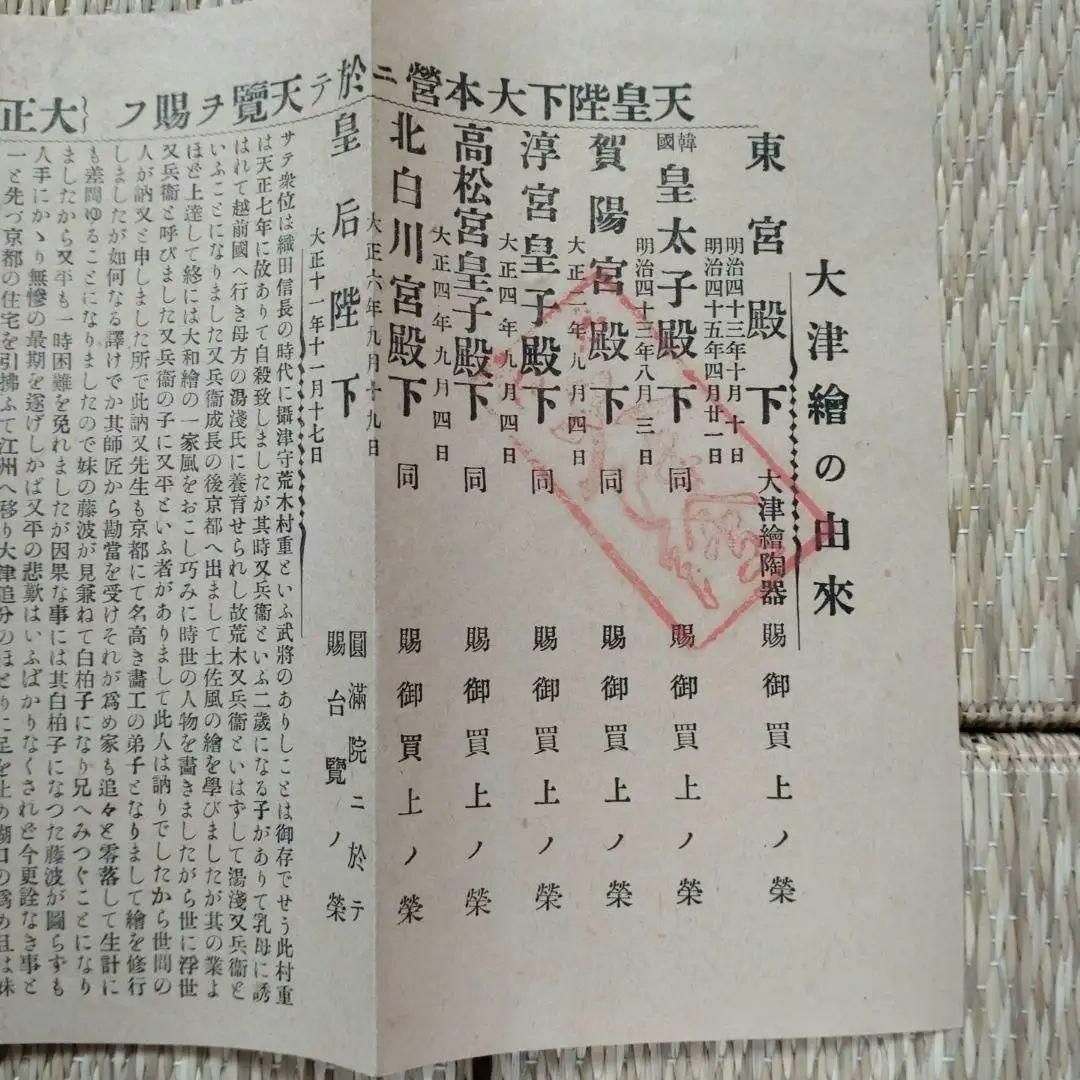 天皇陛下大本營ニ於テ天覽ヲ賜フ 大正
大津繪の由來
東宮殿下 大津繪陶器 賜御買上ノ榮
明治四十三年十月十日
明治四十五年四月廿一日
韓國皇太子殿下 同 賜御買上ノ榮
明治四十三年八月三日
賀陽宮殿下 同 賜御買上ノ榮
大正二年九月四日
淳宮皇子殿下 同 賜御買上ノ榮
大正四年九月四日
高松宮皇子殿下 同 賜御買上ノ榮
大正四年九月四日
北白川宮殿下 同 賜御買上ノ榮
大正六年九月十九日
皇后陛下 圓滿院ニ於テ賜台覽ノ榮
大正十一年十一月十七日
サテ衆位は織田信長の時代に攝津守荒木村重といふ武將のありしことは御存でせう此村重
は天正七年に故ありて自殺致しましたが其時又兵衞といふ二歲になる子がありて乳母に誘
はれて越前國へ行き母方の湯淺氏に養育せられし故荒木又兵衞といはずして湯淺又兵衞と
いふことになりました又兵衞成長の後京都へ出まして土佐風の繪を學びましたが其の業よ
ほど上達して終には大和繪の一家風をおこし巧みに時世の人物を畵きましたがら世に浮世
又兵衞と呼びました又兵衞の子に又平といふ者がありまして此人は訥りでしたから世間の
人が訥又と申しました所で此訥又先生も京都にて名高き畵工の弟子となりまして繪を修行
しましたが如何なる譯けでか其師匠から勘當を受けそれが爲め家も追々と零落して生計に
も差閊ゆることになりましたので妹の藤波が見兼ねて白柏子になり兄へみつぐことになり
ましたから又平も一時困難を免れましたが因果な事には其白柏子になつた藤波が圖らずも
人手にかゝり無慘の最期を遂げしかば又平の悲歎はいふばかりなくされど今更詮なき事と
一と先づ京都の住宅を引拂ふて江州へ移り大津追分のほとりに足を止め糊口の爲め且は妹